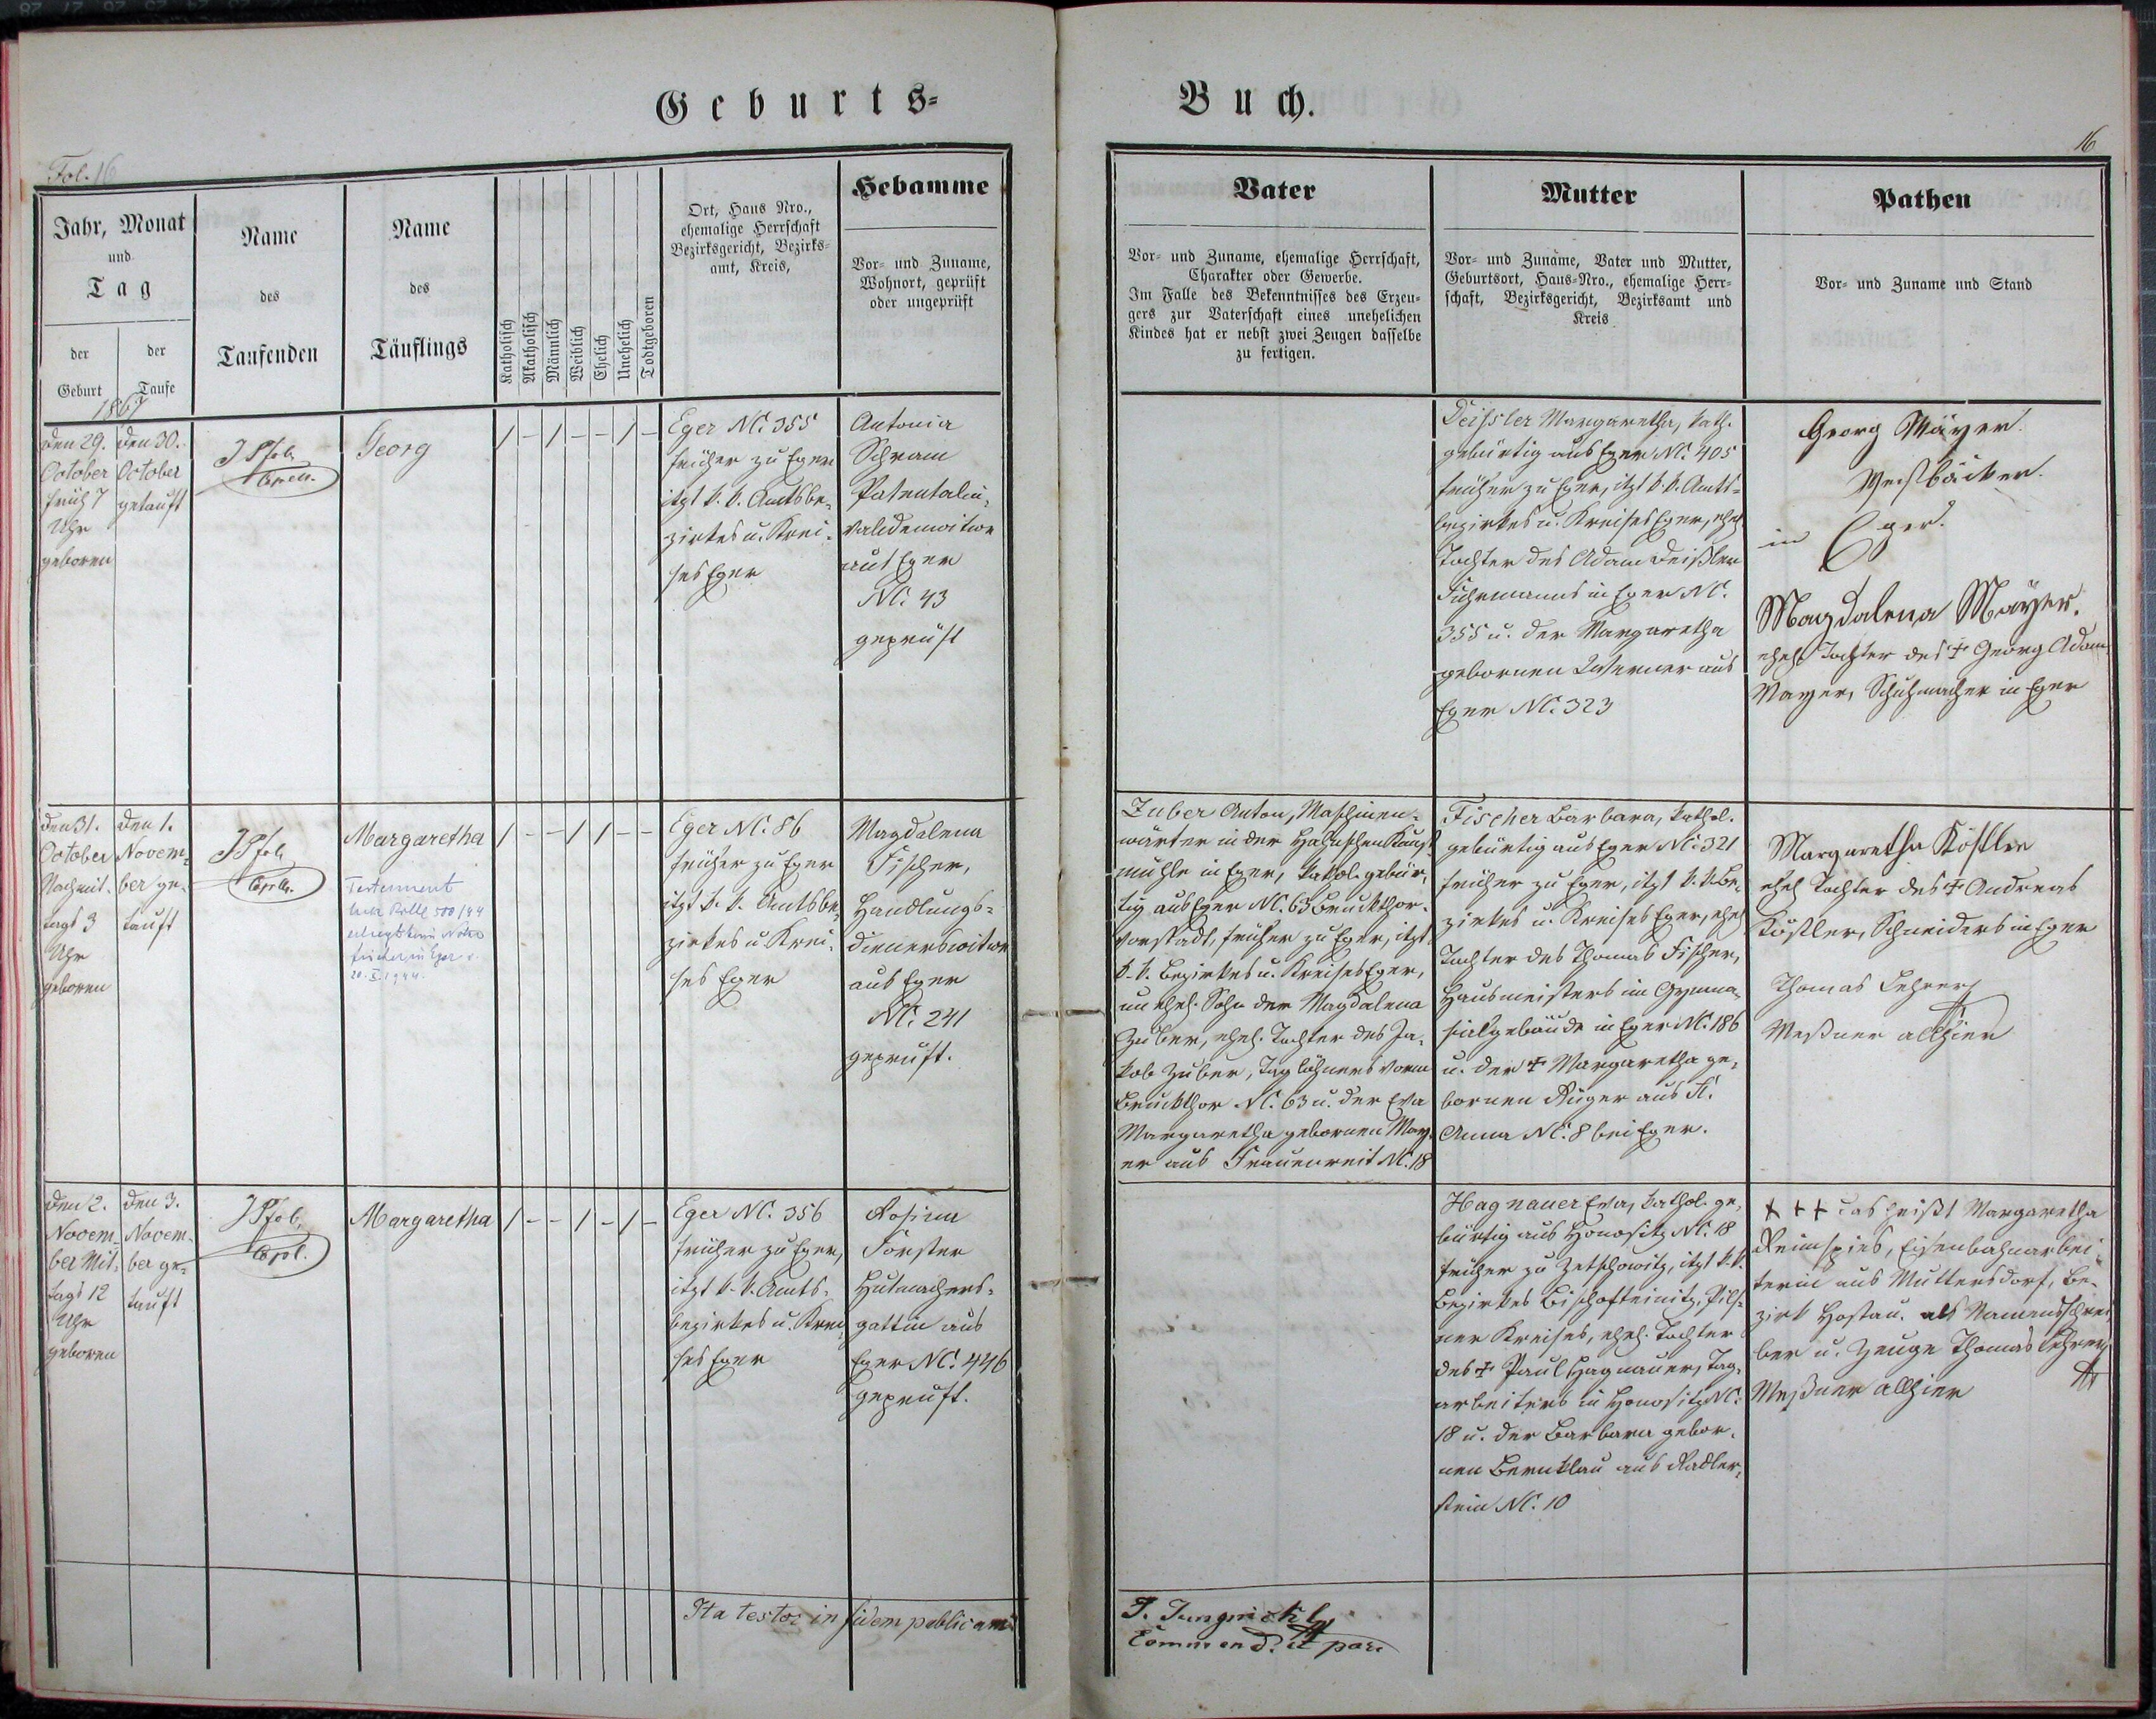 Geburts-
Buch.
Fol. 16
16
Jahr, Monat
und
Tag
der
Geburt
der
Taufe
Name
des
Taufenden
Name
des
Täuflings
Katholisch
Akatholisch
Männlich
Weiblich
Ehelich
Unehelich
Todtgeboren
Ort, Haus Nro.,
ehemalige Herrschaft
Bezirksgericht, Bezirks-
amt, Kreis,
Hebamme
Vor- und Zuname,
Wohnort, geprüft
oder ungeprüft
Vater
Vor- und Zuname, ehemalige Herrschaft,
Charakter oder Gewerbe.
Im Falle des Bekenntnisses des Erzeu-
gers zur Vaterschaft eines unehelichen
Kindes hat er nebst zwei Zeugen dasselbe
zu fertigen.
Mutter
Vor- und Zuname, Vater und Mutter,
Geburtsort, Haus-Nro., ehemalige Herr-
schaft, Bezirksgericht, Bezirksamt und
Kreis
Pathen
Vor- und Zuname und Stand
1867
den 29.
October
früh 7
Uhr
geboren
den 30.
October
getauft
Georg
/ - / - - / -
Eger NC. 355
früher zu Eger
itzt k. k. Amtsbe-
zirkes u. Krei-
ses Eger
Antonia
Schram
aus Eger
NC. 43
geprüft
Deissler Margaretha, kath.
gebürtig aus Eger NC. 405
früher zu Eger, itzt k. k. Amts-
bezirkes u. Kreises Eger, ehel.
Tochter des Adam Deißler
Fuhrmanns in Eger NC.
355 u. der Margaretha
gebornen Werner aus
Eger NC. 323
Georg Mayer.
Weißbäcker.
in Eger.
Magdalena Mayer.
ehel. Tochter des + Georg Adam
Mayer, Schuhmacher in Eger
den 31.
October
Nachmit-
tags 3
Uhr
geboren
den 1.
Novem-
ber ge-
tauft
Margaretha
Testament
500/44
20. X. 1944.
/ - - / / - -
Eger NC. 86
früher zu Eger
itzt k. k. Amtsbe-
zirkes u. Krei-
ses Eger
Magdalena
Fischer,
Handlungs-
dienerswitwe
aus Eger
NC. 241
geprüft.
Zuber Anton, Maschinen-
wärter in der Hahnschen Kunst
mühle in Eger, kathol. gebür-
tig aus Eger NC. 63 Bruckthor-
vorstadt, früher zu Eger, itzt
k. k. Bezirkes u. Kreises Eger,
un ehel. Sohn der Magdalena
Zuber, ehel. Tochter des Ja-
kob Zuber, Taglöhners vorm
Bruckthor NC. 63 u. der Eva
Margaretha gebornen May-
er aus Frauenreit NC. 18
Fischer Barbara, kathol.
gebürtig aus Eger NC. 321
früher zu Eger, itzt k. k. Be-
zirkes u. Kreises Eger, ehel.
Tochter des Thomas Fischer,
Hausmeisters im Gymna-
sialgebäude in Eger NC. 186
u. der + Margaretha ge-
bornen Rüger aus St.
Anna NC. 8 bei Eger.
Margaretha Köstler
ehel. Tochter des + Andreas
Köstler, Schneiders in Eger
Thomas Lehrer
Meßner allhier
den 2.
Novem-
ber Mit-
tags 12
Uhr
geboren
den 3.
Novem-
ber ge-
tauft
Margaretha
/ - - / - / -
Eger NC. 356
früher zu Eger,
itzt k. k. Amts-
bezirkes u. Krei-
ses Eger
Rosina
Forster
Hutmachers-
gattin aus
Eger NC. 446
geprüft.
Hagnauer Eva, kathol. ge-
bürtig aus Honositz NC. 18
früher zu Zetschowitz, itzt k. k.
Bezirkes Bischofteinitz, Pils-
ner Kreises, ehel. Tochter
des + Paul Hagnauer, Tag-
arbeiters in Honositz NC.
18 u. der Barbara gebor-
nen Bernklau aus Radler-
stein NC. 10
+ + + das heißt Margaretha
Reimspies, Eisenbahnarbei-
terin aus Muttersdorf, Be-
zirk Hostau. als Namensschrei
ber u. Zeuge Thomas Lehrer
Meßner allhier
Ita testor in fidem publicam
Commend. et par.